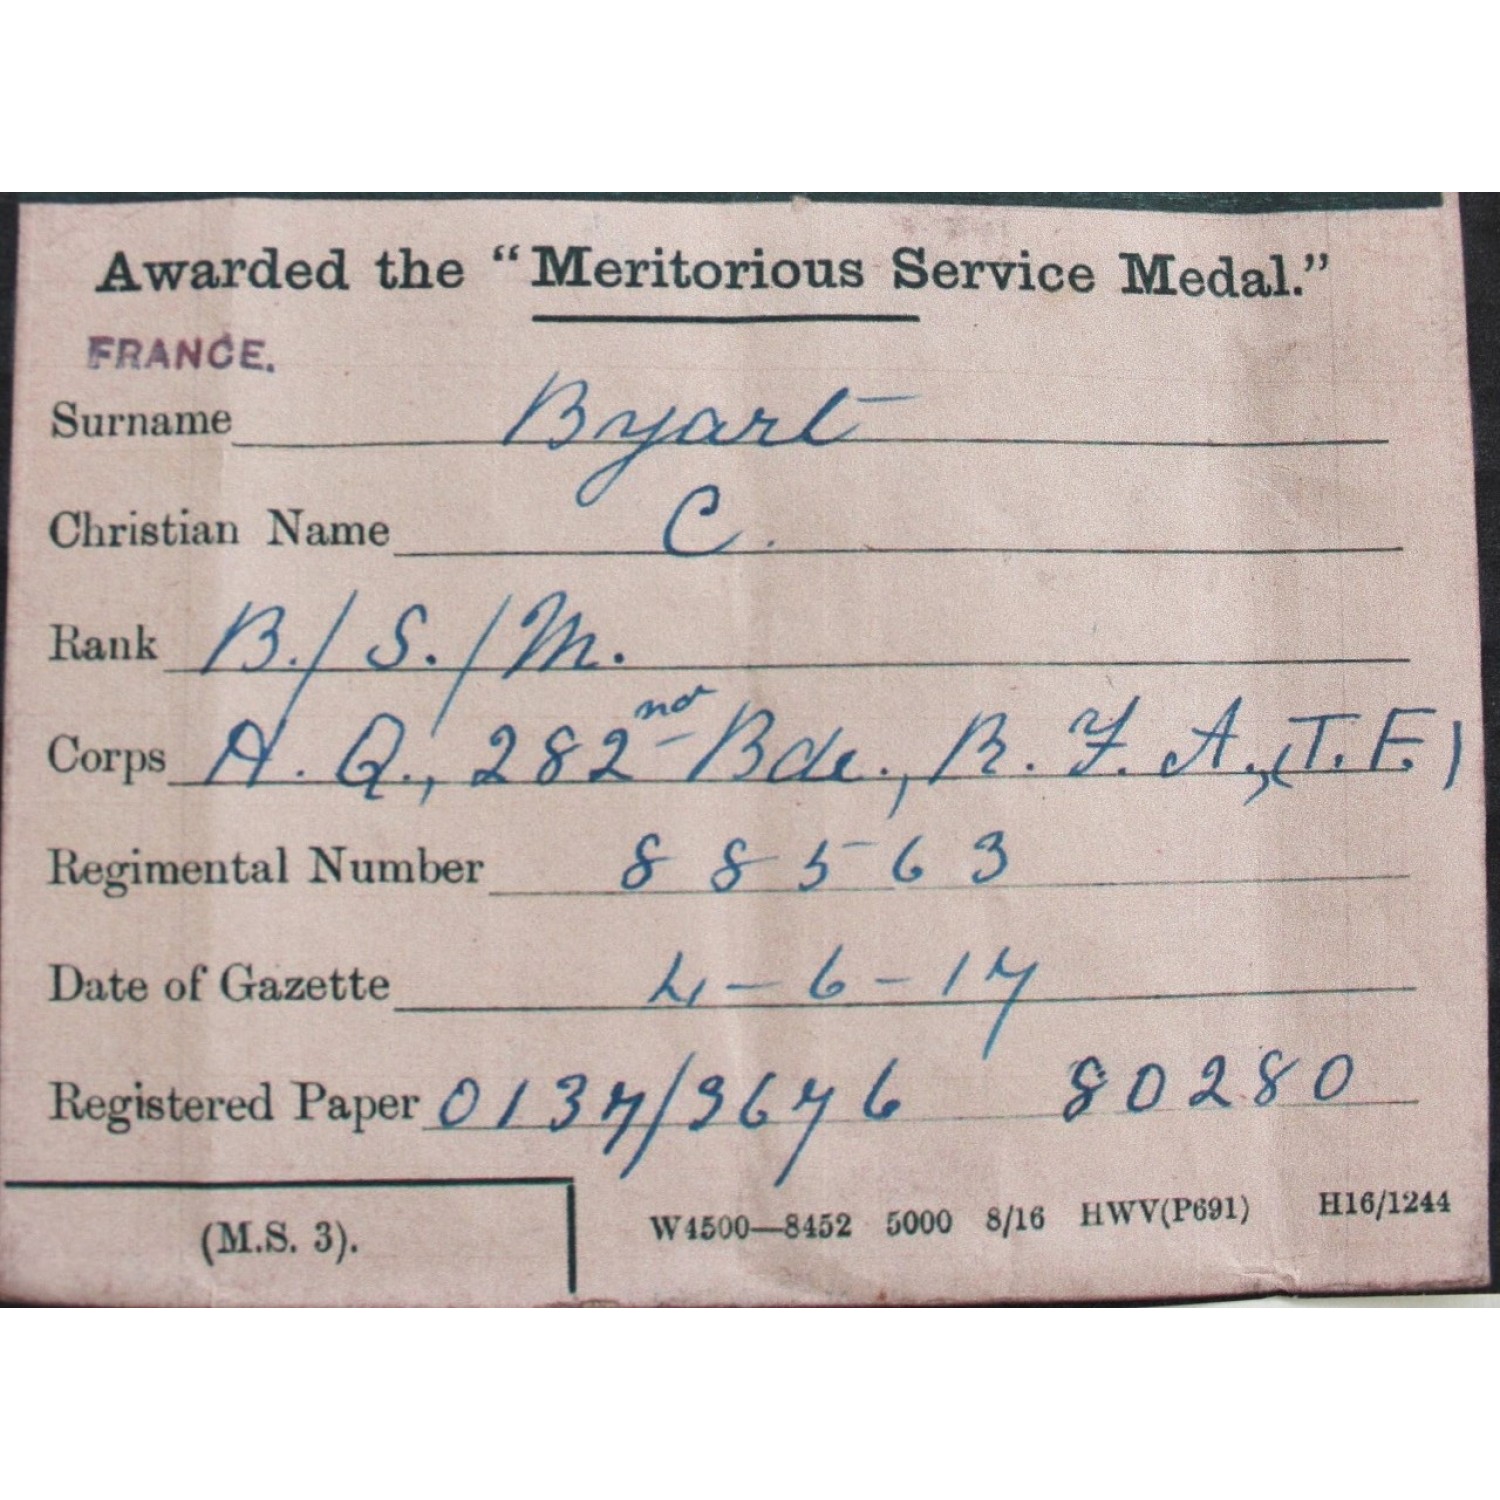 Awarded the "Meritorious Service Medal."
FRANCE.
Surname Byart
Christian Name C.
Rank B./S./M.
Corps A. Q., 282nd Bde., R. F. A., (T. F.)
Regimental Number 88563
Date of Gazette 4-6-17
Registered Paper 0137/3676 80280
(M.S. 3). W4500—8452 5000 8/16 HWV(P691) H16/1244